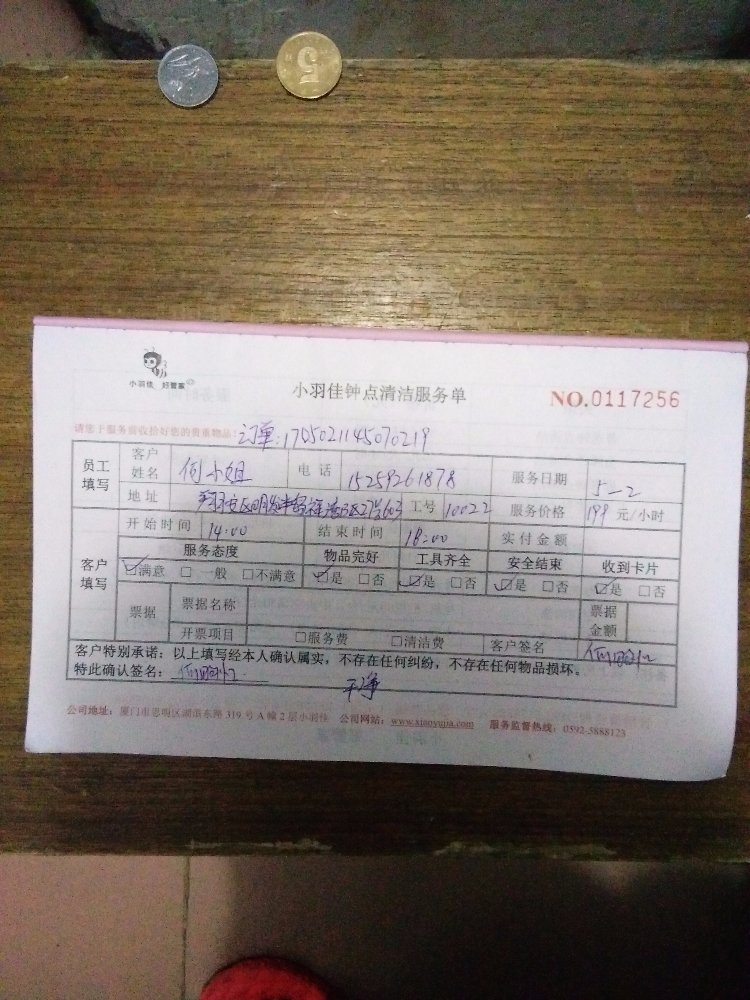 5
小羽佳 好管家
小羽佳钟点清洁服务单
NO.0117256
请您于服务前收拾好您的贵重物品!
订单:1705021145070219
员工填写 客户姓名 何小姐 电话 15259261878 服务日期 5-2
地址 翔安区 603 工号 10022 服务价格 199 元/小时
客户填写 开始时间 14:00 结束时间 18:00 实付金额
服务态度 物品完好 工具齐全 安全结束 收到卡片
☑满意 □一般 □不满意 ☑是 □否 ☑是 □否 ☑是 □否 ☑是 □否
票据 票据名称 票据金额
开票项目 □服务费 □清洁费 客户签名
客户特别承诺:以上填写经本人确认属实,不存在任何纠纷,不存在任何物品损坏。
特此确认签名:
干净
公司地址:厦门市思明区湖滨东路 319 号 A 幢 2 层小羽佳 公司网站:www.xiaoyujia.com 服务监督热线:0592-5888123